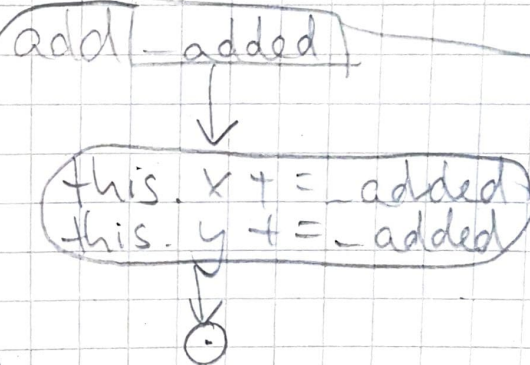 add _added
this.x += _added
this.y += _added